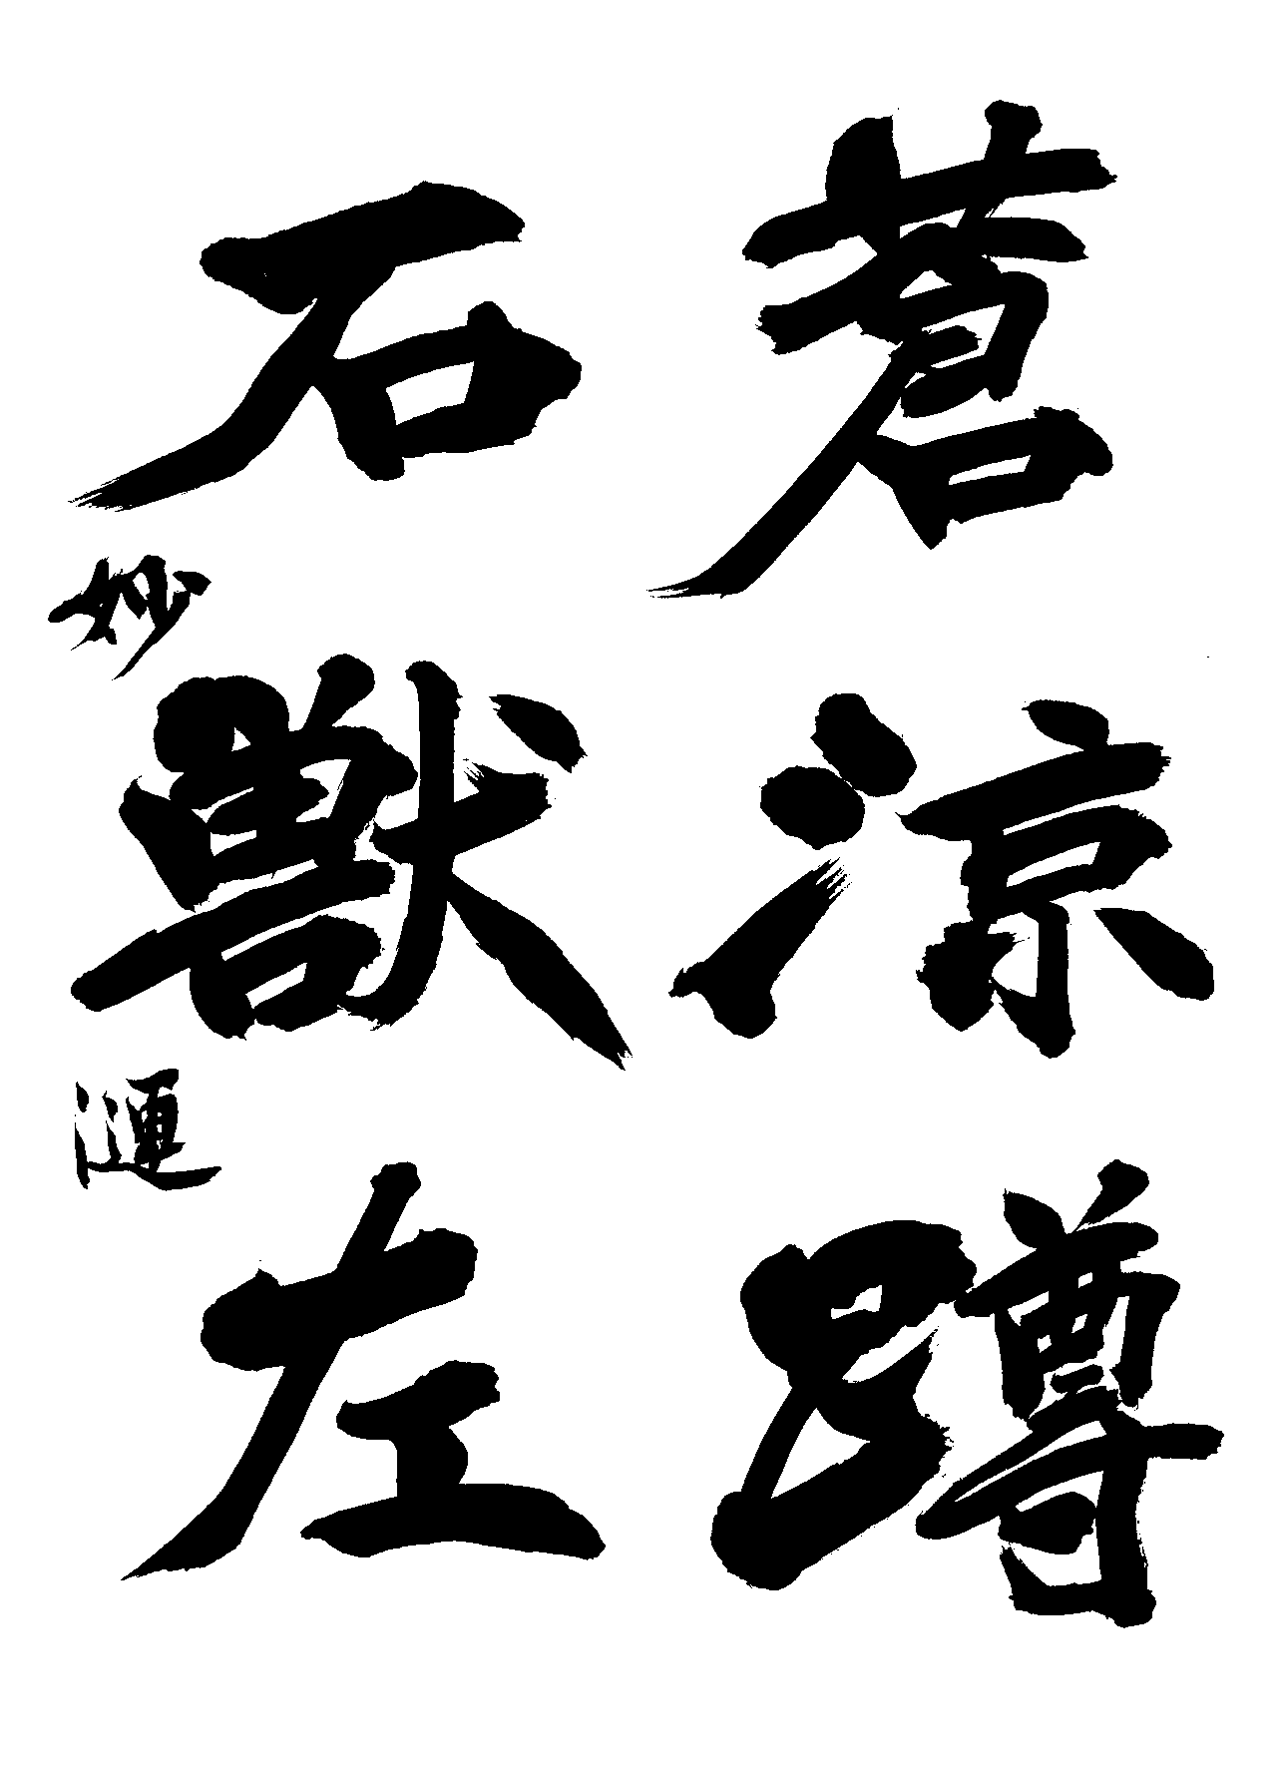 蒼涼蹲
石獣左
妙漣